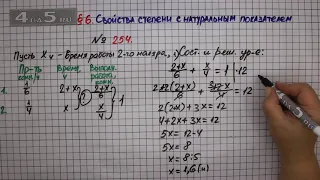 § 6. Свойства степени с натуральным показателем
№ 254.
Пусть x ч – время работы 2-го маляра,
и реш. ур-е:
Пр-ть Время, Выполн.
1. 1/6 2+x 2+x/6
2. 1/4 x x/4
1
2+x/6 + x/4 = 1 | · 12
= 12
2(2+x) + 3x = 12
4+2x+3x = 12
5x = 12-4
5x = 8
x = 8:5
x = 1,6 (ч)